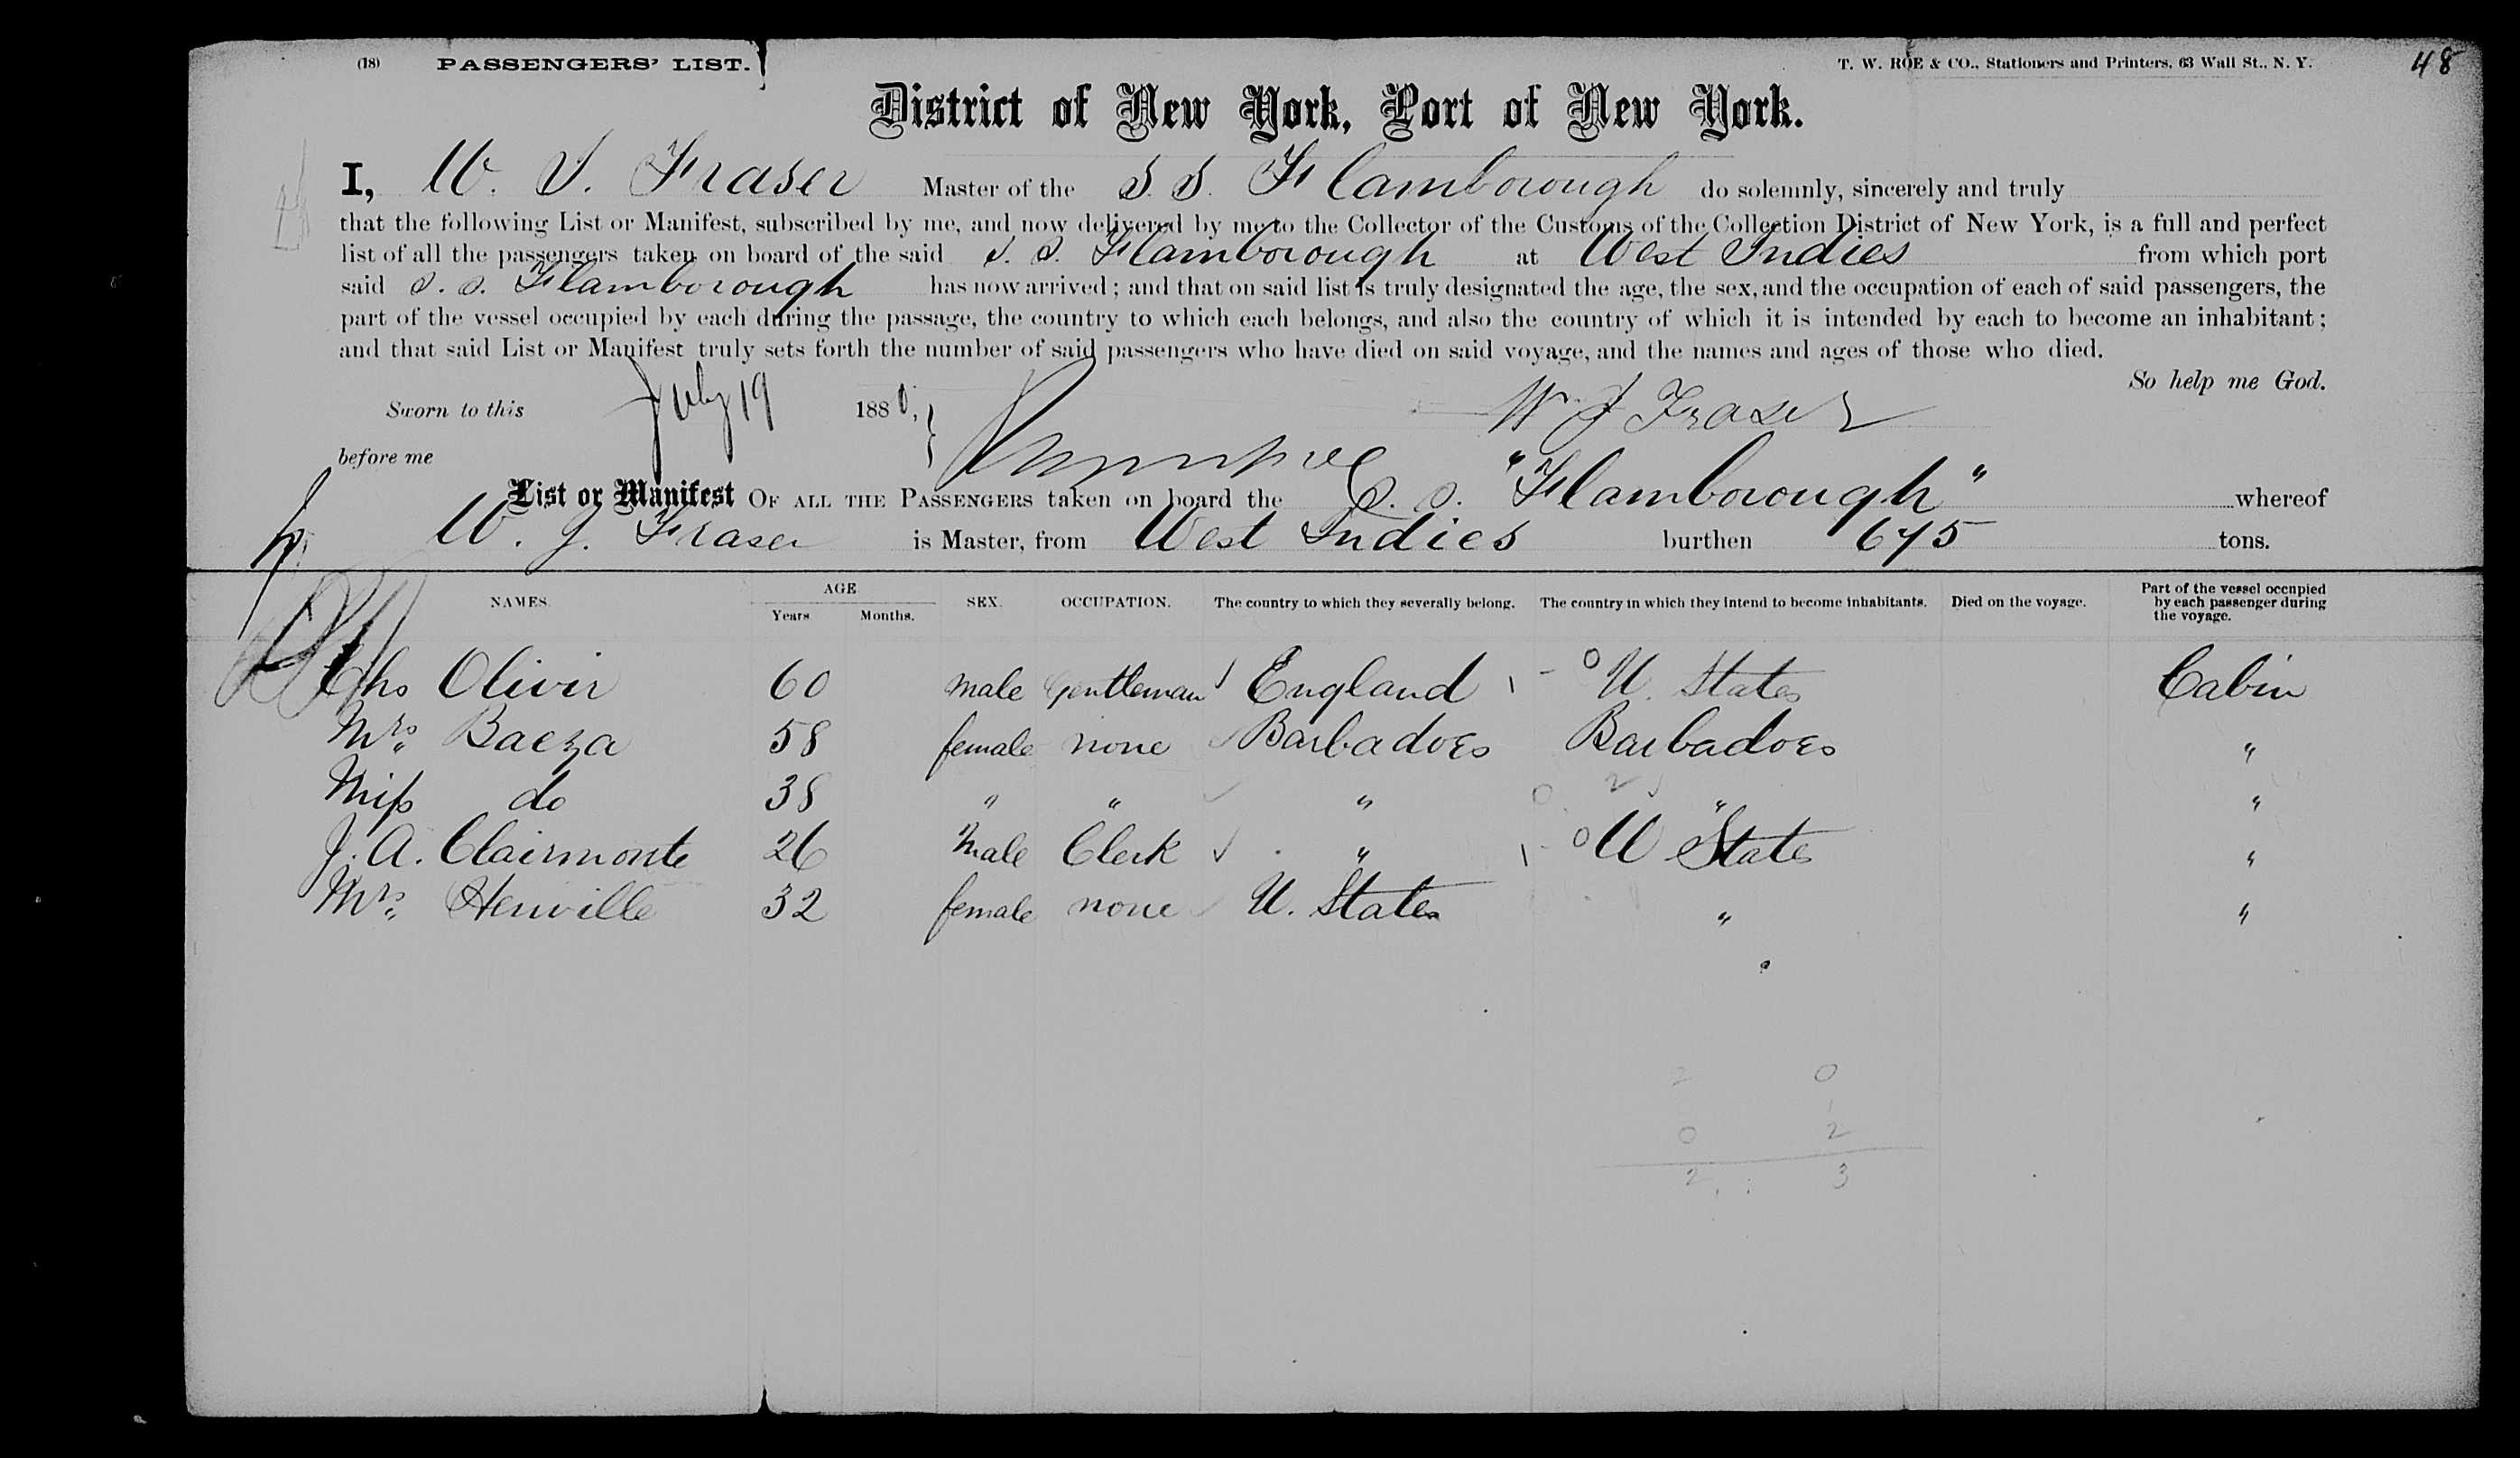 (18) PASSENGERS' LIST. T. W. ROE & CO., Stationers and Printers, 63 Wall St., N. Y. 48
District of New York, Port of New York.
I, W. J. Fraser Master of the S. S. Flamborough do solemnly, sincerely and truly
that the following List or Manifest, subscribed by me, and now delivered by me to the Collector of the Customs of the Collection District of New York, is a full and perfect
list of all the passengers taken on board of the said S. S. Flamborough at West Indies from which port
said S. S. Flamborough has now arrived; and that on said list is truly designated the age, the sex, and the occupation of each of said passengers, the
part of the vessel occupied by each during the passage, the country to which each belongs, and also the country of which it is intended by each to become an inhabitant;
and that said List or Manifest truly sets forth the number of said passengers who have died on said voyage, and the names and ages of those who died.
So help me God.
Sworn to this July 19 1880, W J Fraser
before me
List or Manifest OF ALL THE PASSENGERS taken on board the S. S. "Flamborough" whereof
W. J. Fraser is Master, from West Indies burthen 675 tons.
NAMES. AGE Years Months. SEX. OCCUPATION. The country to which they severally belong. The country in which they intend to become inhabitants. Died on the voyage. Part of the vessel occupied by each passenger during the voyage.
Chs Olivir 60 male Gentleman England U. States Cabin
Mrs Baeza 58 female none Barbadoes Barbadoes "
Miss do 38 " " " " "
J. A. Clairmonte 26 Male Clerk " U States "
Mrs Henville 32 female none U. States " "
2 0
1
0 2
2 3